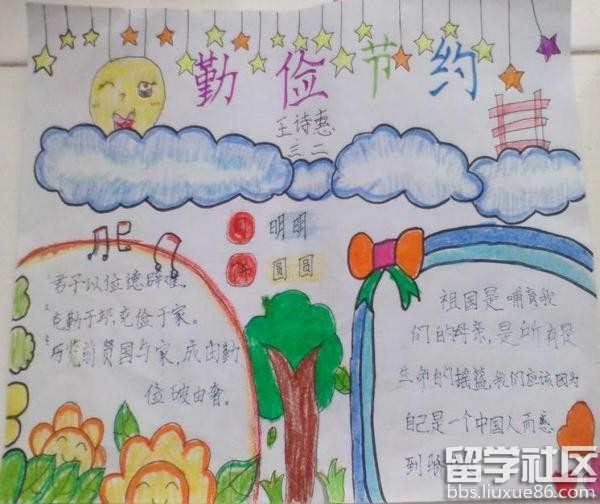 勤俭节约
王诗惠
三二
明明
圆圆
1君子以俭德辟难。
2克勤于邦克俭于家。
3历览前贤国与家，成由勤
俭破由奢。
祖国是哺育我
们的母亲，是所有是
生命的摇篮，我们应该因为
自己是一个中国人而感
到骄
留学社区
bbs.liuxue86.com